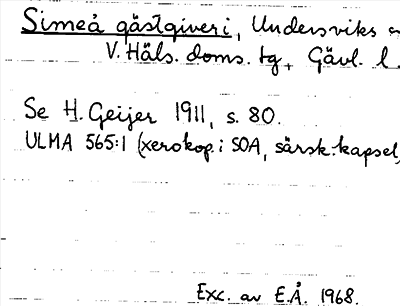 Simeå gästgiveri, Undersviks s
V. Häls. doms. tg, Gävl. l.
Se H. Geijer 1911, s. 80.
ULMA 565:1 (xerokop. i SOA, särsk. kapsel)
Exc. av E.Å. 1968.